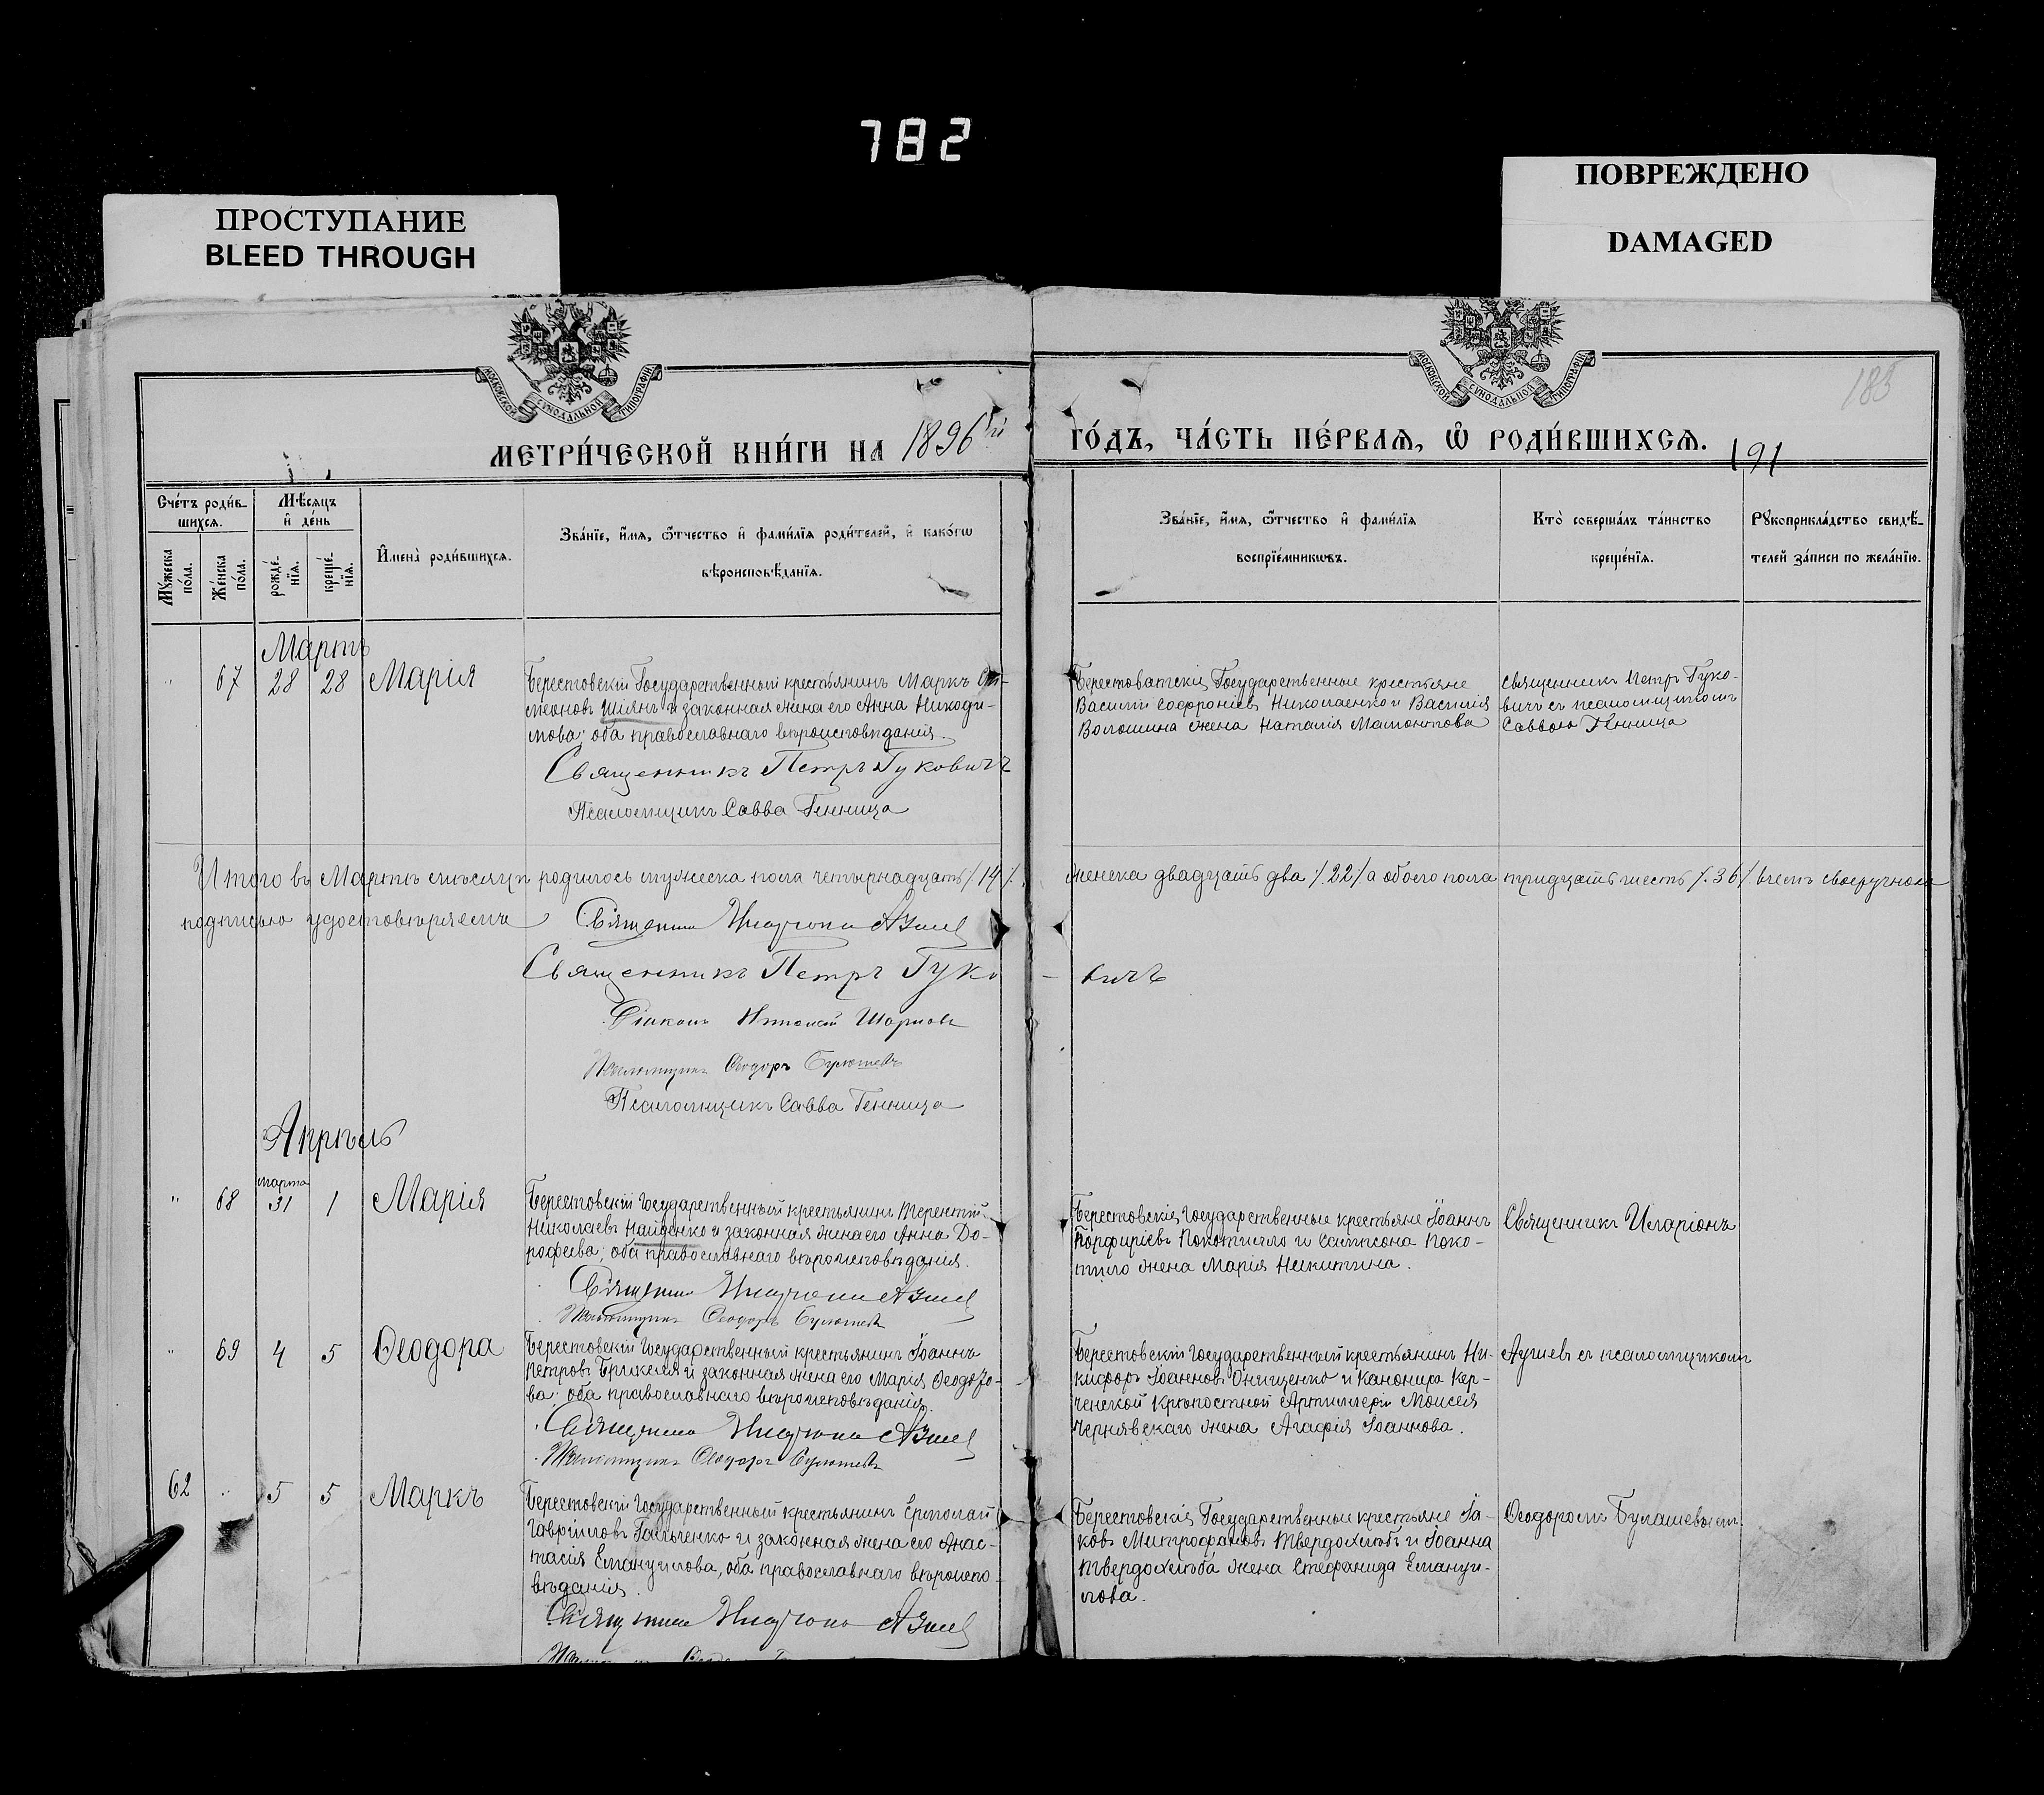 782
ПРОСТУПАНИЕ
BLEED THROUGH
ПОВРЕЖДЕНО
DAMAGED
МОСКОВСКОЙ СѴНОДАЛЬНОЙ ТИПОГРАФІИ
МОСКОВСКОЙ СѴНОДАЛЬНОЙ ТИПОГРАФІИ
185
МЕТРИ́ЧЕСКОЙ КНИ́ГИ НА 1896й
ГО́ДЪ, ЧА́СТЬ ПЕ́РВАѦ, Ѽ РОДИ́ВШИХСѦ.
191
Сче́тъ роди́в-
шихсѧ.
Мꙋ́жеска по́ла.
Же́нска по́ла.
Мѣ́сѧцъ
и҆ де́нь
рожде́-нїѧ.
креще́-нїѧ.
И҆мена̀ роди́вшихсѧ.
Зва́нїе, и҆́мѧ, ѻ҆́тчество и҆ фами́лїѧ роди́телей, и҆ како́гѡ
вѣроисповѣ́данїѧ.
Зва́нїе, и҆́мѧ, ѻ҆́тчество и҆ фами́лїѧ
воспрїе́мникѡвъ.
Кто̀ соверша́лъ та́инство
креще́нїѧ.
Рꙋкоприкла́дство свидѣ́-
телей за́писи по жела́нїю.
Мартъ
" 67 28 28 Марія
Берестовскій Государственный крестьянинъ Маркъ Си-
меоновъ Шіянъ и законная жена его Анна Никоди-
мова; оба православнаго вѣроисповѣданія.
Священникъ Петръ Гуковичъ
Псаломщикъ Савва Генница
Берестоватскіе Государственные крестьяне
Василій Софроніевъ Николаенко и Василія
Волошина жена Наталія Мамонтова
Священникъ Петръ Гуко-
вичъ съ псаломщикомъ
Саввою Генница
Итого въ Мартѣ мѣсяцѣ родилось мужеска пола четырнадцать /14/. женска двадцать два /.22/ а обоего пола тридцать шесть /.36/. въ чемъ своеручною
подписью удостовѣряемъ Священникъ Иларіонъ
Священникъ Петръ Гуко-вичъ
Діаконъ Николай
Псаломщикъ Ѳеодоръ Булашевъ
Псаломщикъ Савва Генница
Апрѣль
" 68 марта 31 1 Марія
Берестовскій Государственный крестьянинъ Терентій
Николаевъ Найденко и законная жена его Анна До-
рофеева; оба православнаго вѣроисповѣданія.
Священникъ Иларіонъ
Псаломщикъ Ѳеодоръ Булашевъ
Берестовскіе Государственные крестьяне Іоаннъ
Порфиріевъ Покотило и Сампсона Поко-
тило жена Марія Никитина.
Священникъ Иларіонъ
" 69 4 5 Ѳеодора
Берестовскій Государственный крестьянинъ Іоаннъ
Петровъ и законная жена его Марія Ѳеодо-
ва; оба православнаго вѣроисповѣданія.
Священникъ Иларіонъ
Псаломщикъ Ѳеодоръ Булашевъ
Берестовскій Государственный крестьянинъ Ни-
кифоръ Іоанновъ Онищенко и канонира Кер-
ченской крѣпостной Артиллеріи Моисея
Чернявскаго жена Агафія Іоаннова.
съ псаломщикомъ
62 " 5 5 Маркъ
Берестовскій Государственный крестьянинъ Ермолай
Гавріиловъ Гальченко и законная жена его Анас-
тасія Емануилова, оба православнаго вѣроиспо-
вѣданія.
Священникъ Иларіонъ
Берестовскіе Государственные крестьяне Іа-
ковъ Митрофановъ Твердохлѣбъ и Іоанна
Твердохлѣба жена Стефанида Емануи-
лова.
Ѳеодоромъ Булашевымъ.